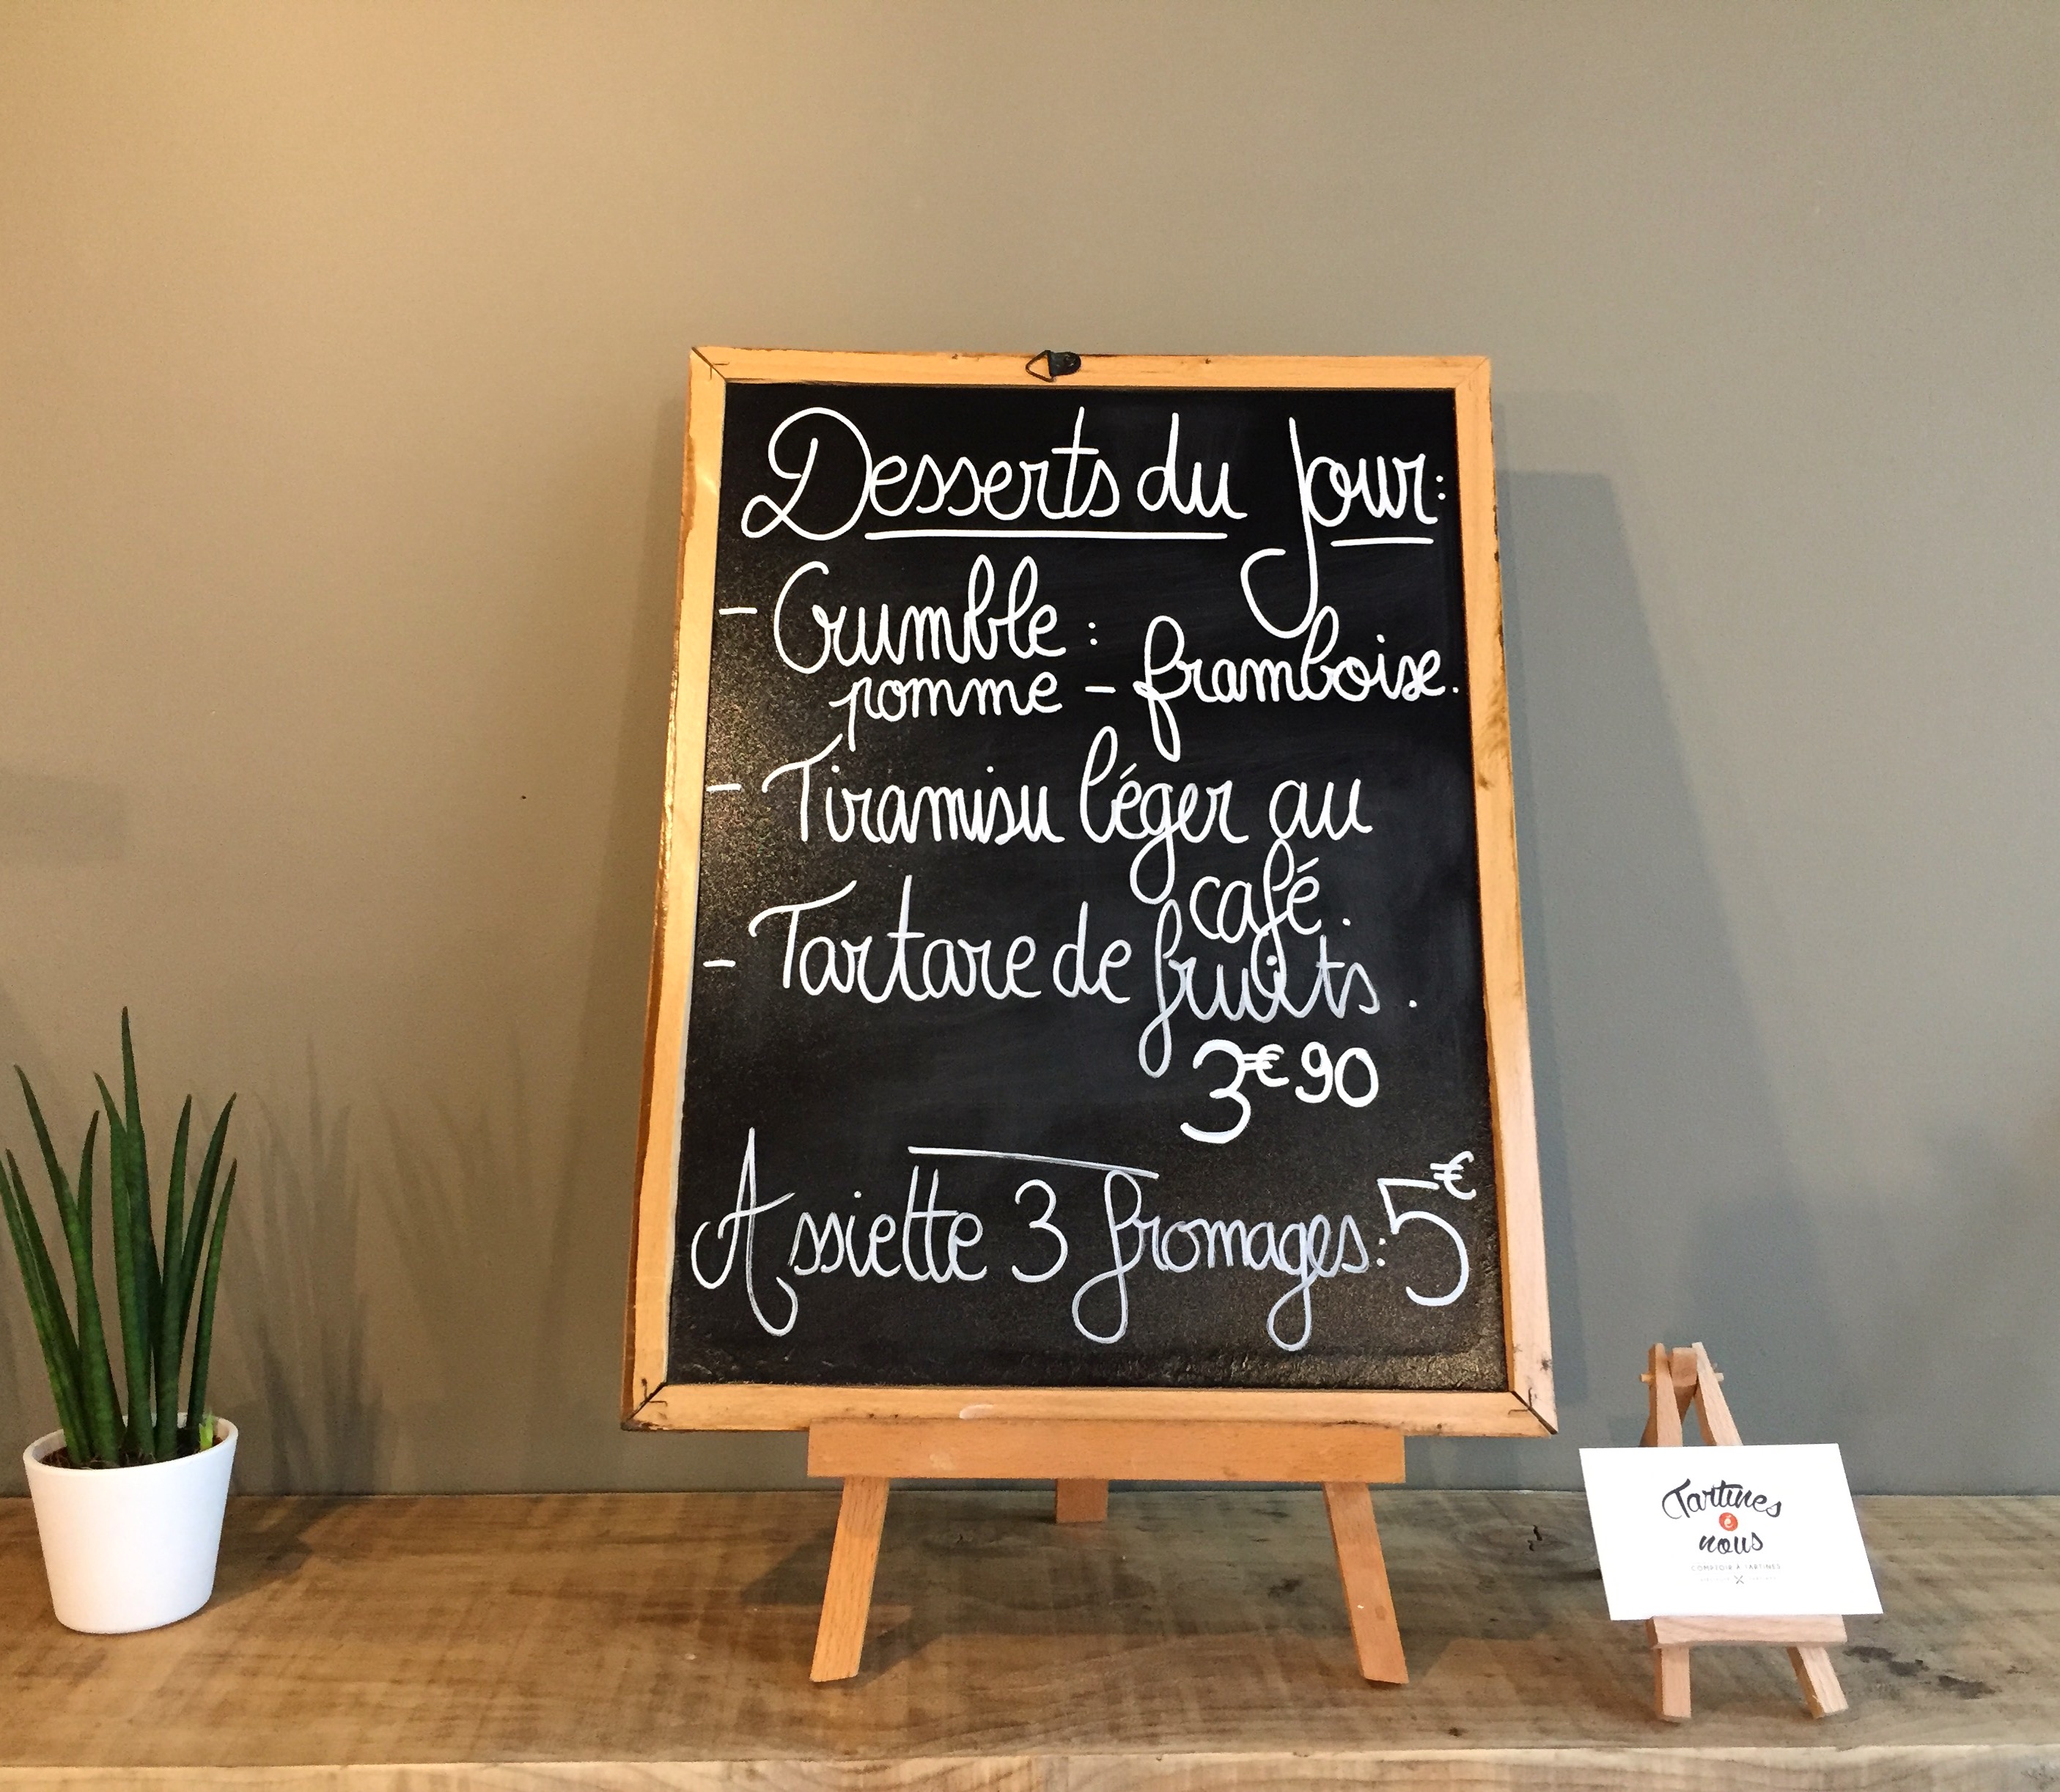 Desserts du Jour:
- Crumble :
pomme - framboise.
- Tiramisu léger au
café.
- Tartare de fruits.
3€90
Assiette 3 fromages: 5€
Tartines
é
nous
COMPTOIR À TARTINES